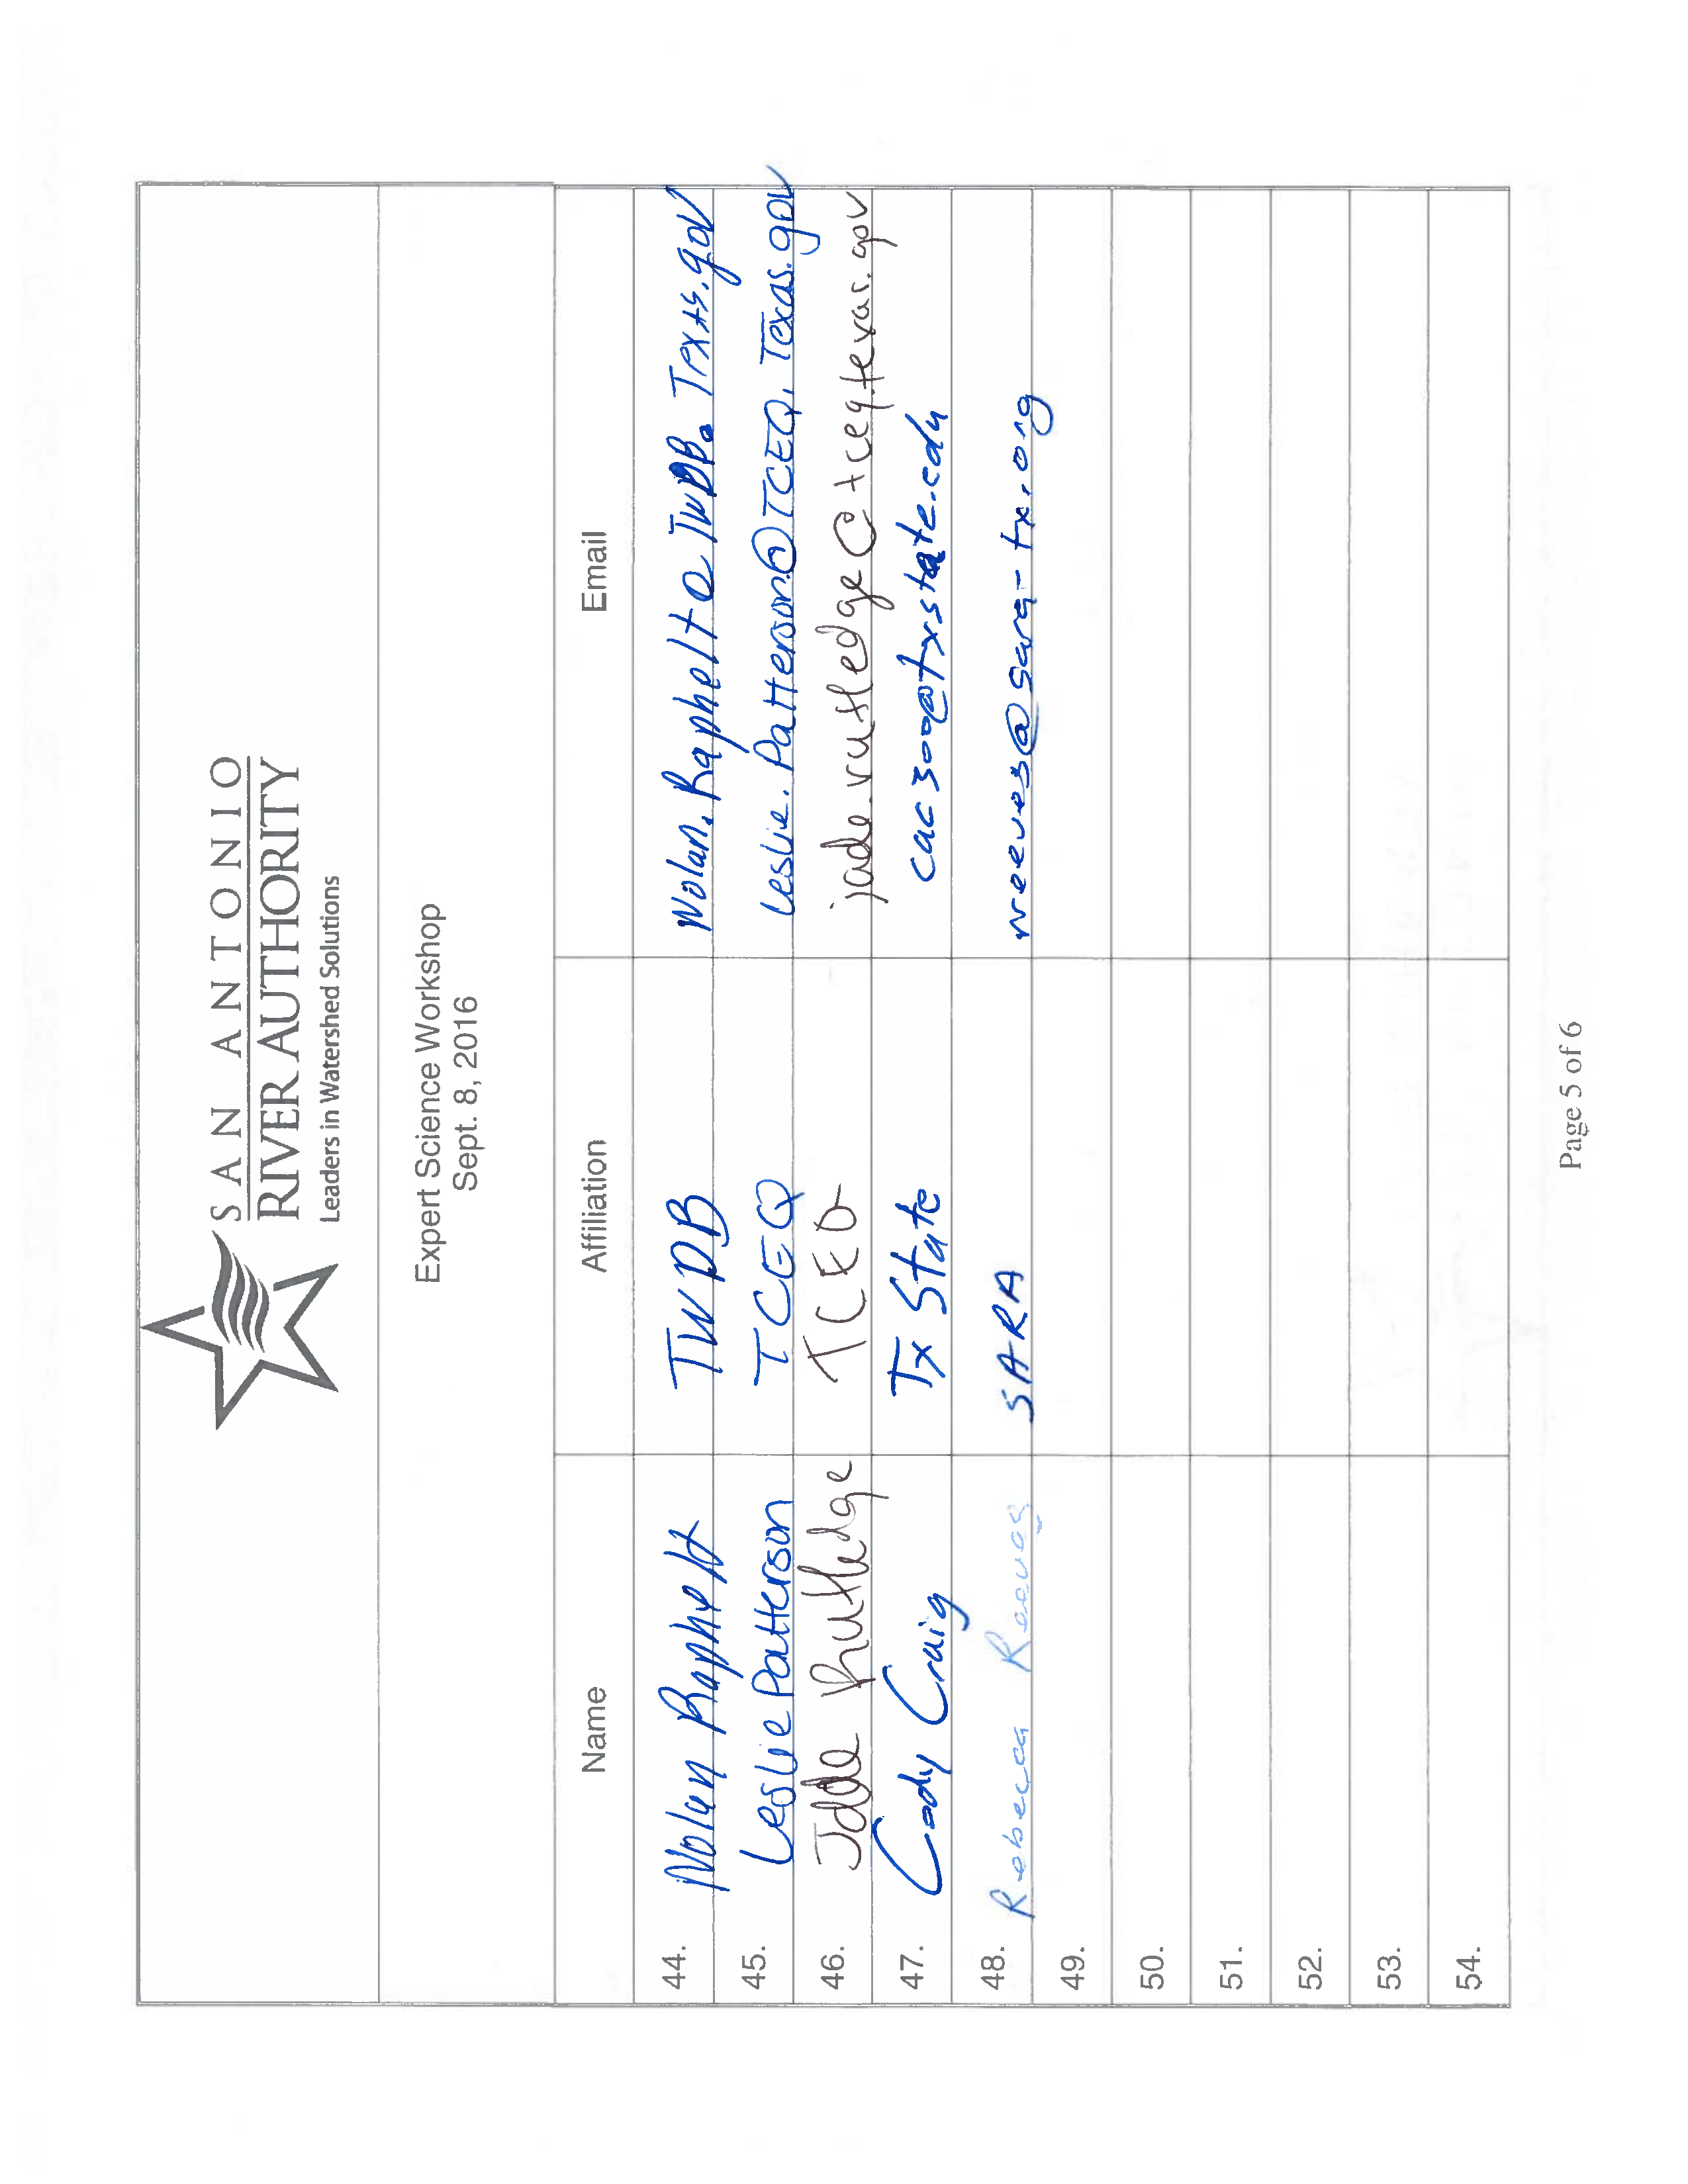 SAN ANTONIO
RIVER AUTHORITY
Leaders in Watershed Solutions
Expert Science Workshop
Sept. 8, 2016
Name Affiliation Email
44. Nolan Raphelt TWDB Nolan.Raphelt@TWDB.Texas.gov
45. Leslie Patterson TCEQ Leslie.Patterson@TCEQ.Texas.gov
46. Jade Rutledge TCEQ jade.rutledge@tceq.texas.gov
47. Cody Craig Tx State cac300@txstate.edu
48. Rebecca Reeves SARA rreeves@sara-tx.org
49.
50.
51.
52.
53.
54.
Page 5 of 6